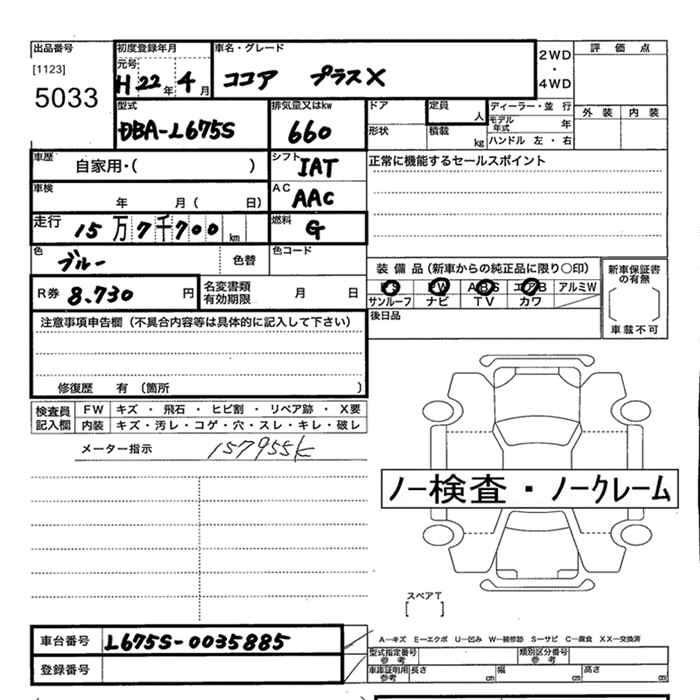 出品番号
[1123]
5033
初度登録年月
元号
H 22年 4月
車名・グレード
ココア プラスX
2WD
・
4WD
評価点
外装 内装
型式
DBA-L675S
排気量又はkw
660
ドア
形状
定員
人
積載
kg
ディーラー・並行
モデル年式 年
ハンドル 左・右
車歴
自家用・( )
シフト
IAT
正常に機能するセールスポイント
車検
年 月( 日)
AC
AAC
走行
15万7千700km
燃料
G
色
ブルー
色替
色コード
装備品(新車からの純正品に限り○印)
PS PW ABS エアB アルミW
サンルーフ ナビ TV カワ
新車保証書の有無
車載不可
R券 8.730円
名変書類有効期限
月 日
後日品
注意事項申告欄(不具合内容等は具体的に記入して下さい)
修復歴 有(箇所 )
検査員記入欄
FW キズ・飛石・ヒビ割・リペア跡・X要
内装 キズ・汚レ・コゲ・穴・スレ・キレ・破レ
メーター指示 157955K
ノー検査・ノークレーム
スペアT
[ ]
車台番号 L675S-0035885
登録番号
A―キズ E―エクボ U―凹み W―補修跡 S―サビ C―腐食 XX―交換済
型式指定番号
参考
類別区分番号
参考
車庫証明用
参考
長さ cm 幅 cm 高さ cm